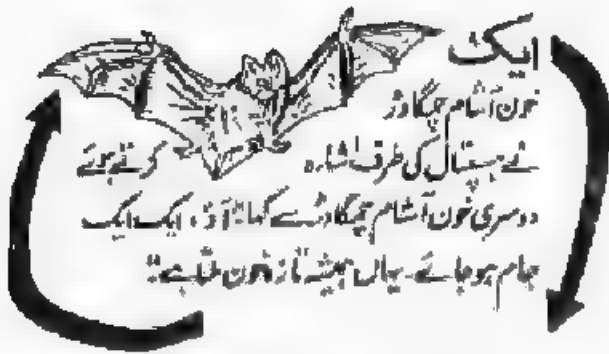 ایک
خون آشام چمگادڑ
نے ہسپتال کی طرف اشارہ کرتے ہوئے
دوسری خون آشام چمگادڑ سے کہا: "آؤ، ایک ایک
جام ہو جائے۔ یہاں ہمیشہ تازہ خون ملتا ہے"